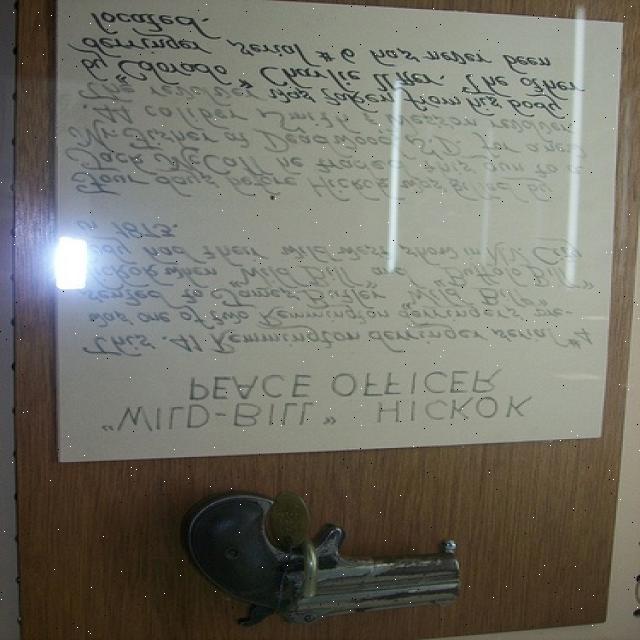 "WILD-BILL" HICKOK
PEACE OFFICER
This .41 Remmington derringer serial #4
was one of two Remmington derringers pre-
sented to James Butler "Wild Bill"
Hickok when "Wild Bill" and "Buffalo Bill"
Cody had their wild west show in N.Y. City
in 1873.
Four days before Hickok was killed by
Jack McCall he traded this gun to a
Mr. Fisher at Deadwood, S.D. for a
.44 caliber Smith & Wesson revolver.
The revolver was taken from his body
by Colorado" Charlie Utter. The other
derringer serial #6 has never been
located.